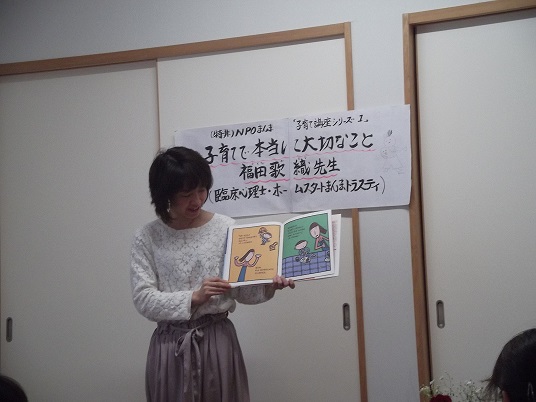 (特非)NPOまんま 「子育て講座シリーズ1」
子育てで本当に大切なこと
福田歌織先生
(臨床心理士・ホームスタートまんまトラスティ)